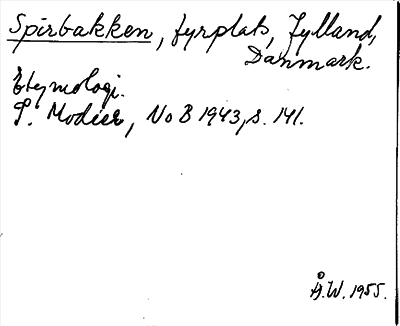 Spirbakken, fyrplats, Jylland,
Danmark.
Etymologi.
I. Modéer, NoB 1943, s. 141.
Å.W. 1955.